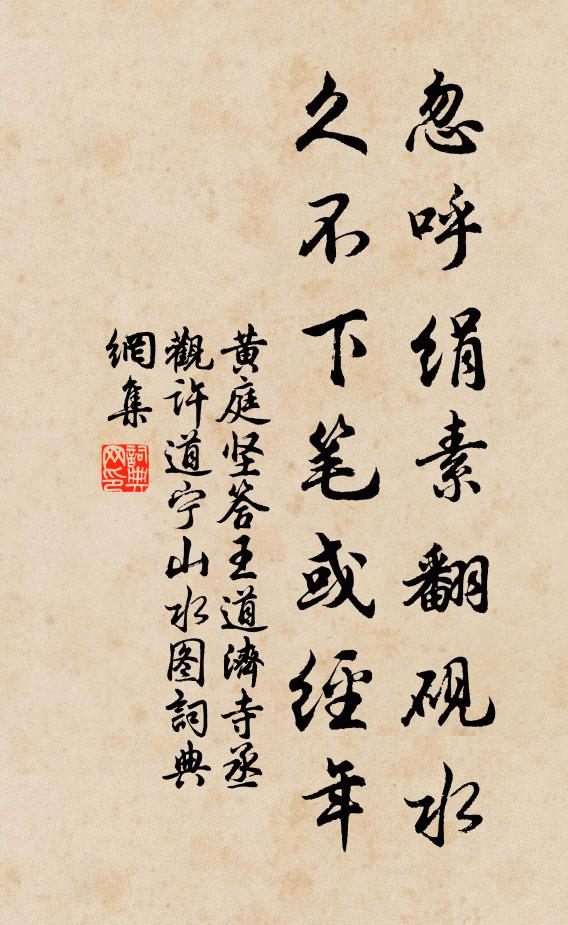 忽呼绢素翻砚水
久不下笔或經年
黄庭坚答王道濟寺丞
觀许道宁山水图詞典
網集
詞典
网印